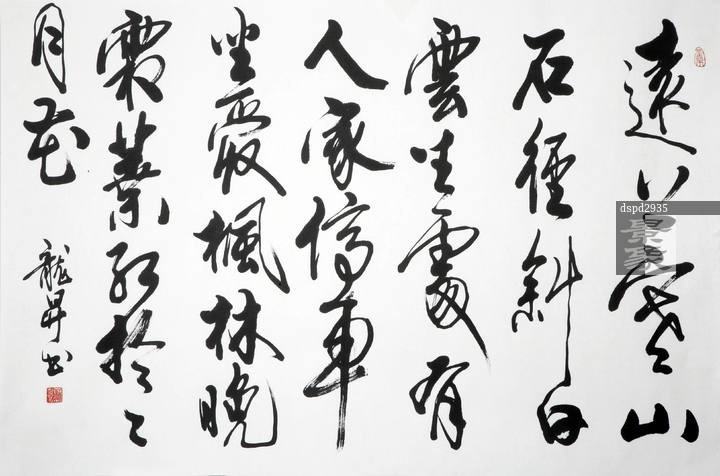 遠上寒山
石徑斜白
雲生處有
人家停車
坐愛楓林晚
霜葉紅於二
月花
龍昇书
dspd2935